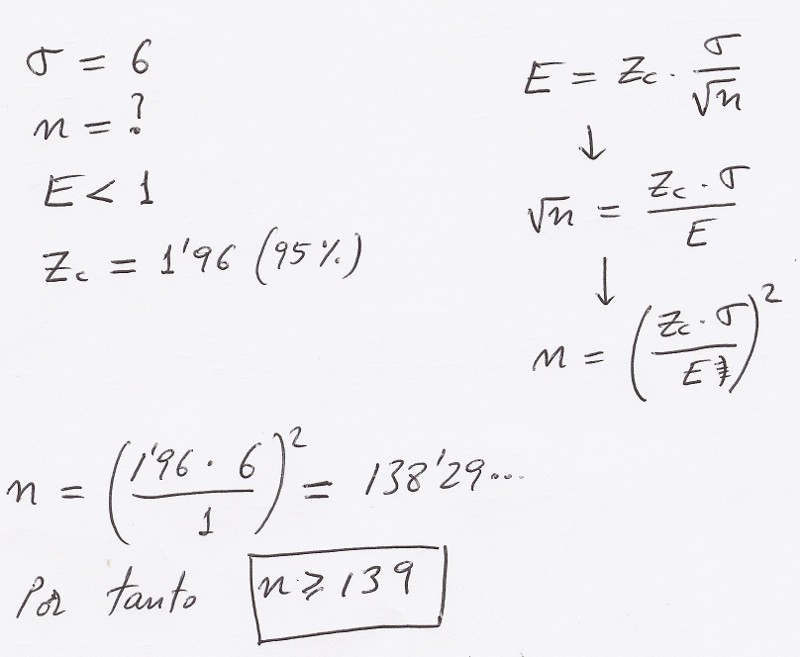 σ = 6
n = ?
E < 1
Zc = 1'96 (95%)
E = Zc · σ/√n
↓
√n = Zc · σ/E
↓
n = (Zc · σ/E)²
n = (1'96 · 6/1)² = 138'29...
Por tanto n ≥ 139